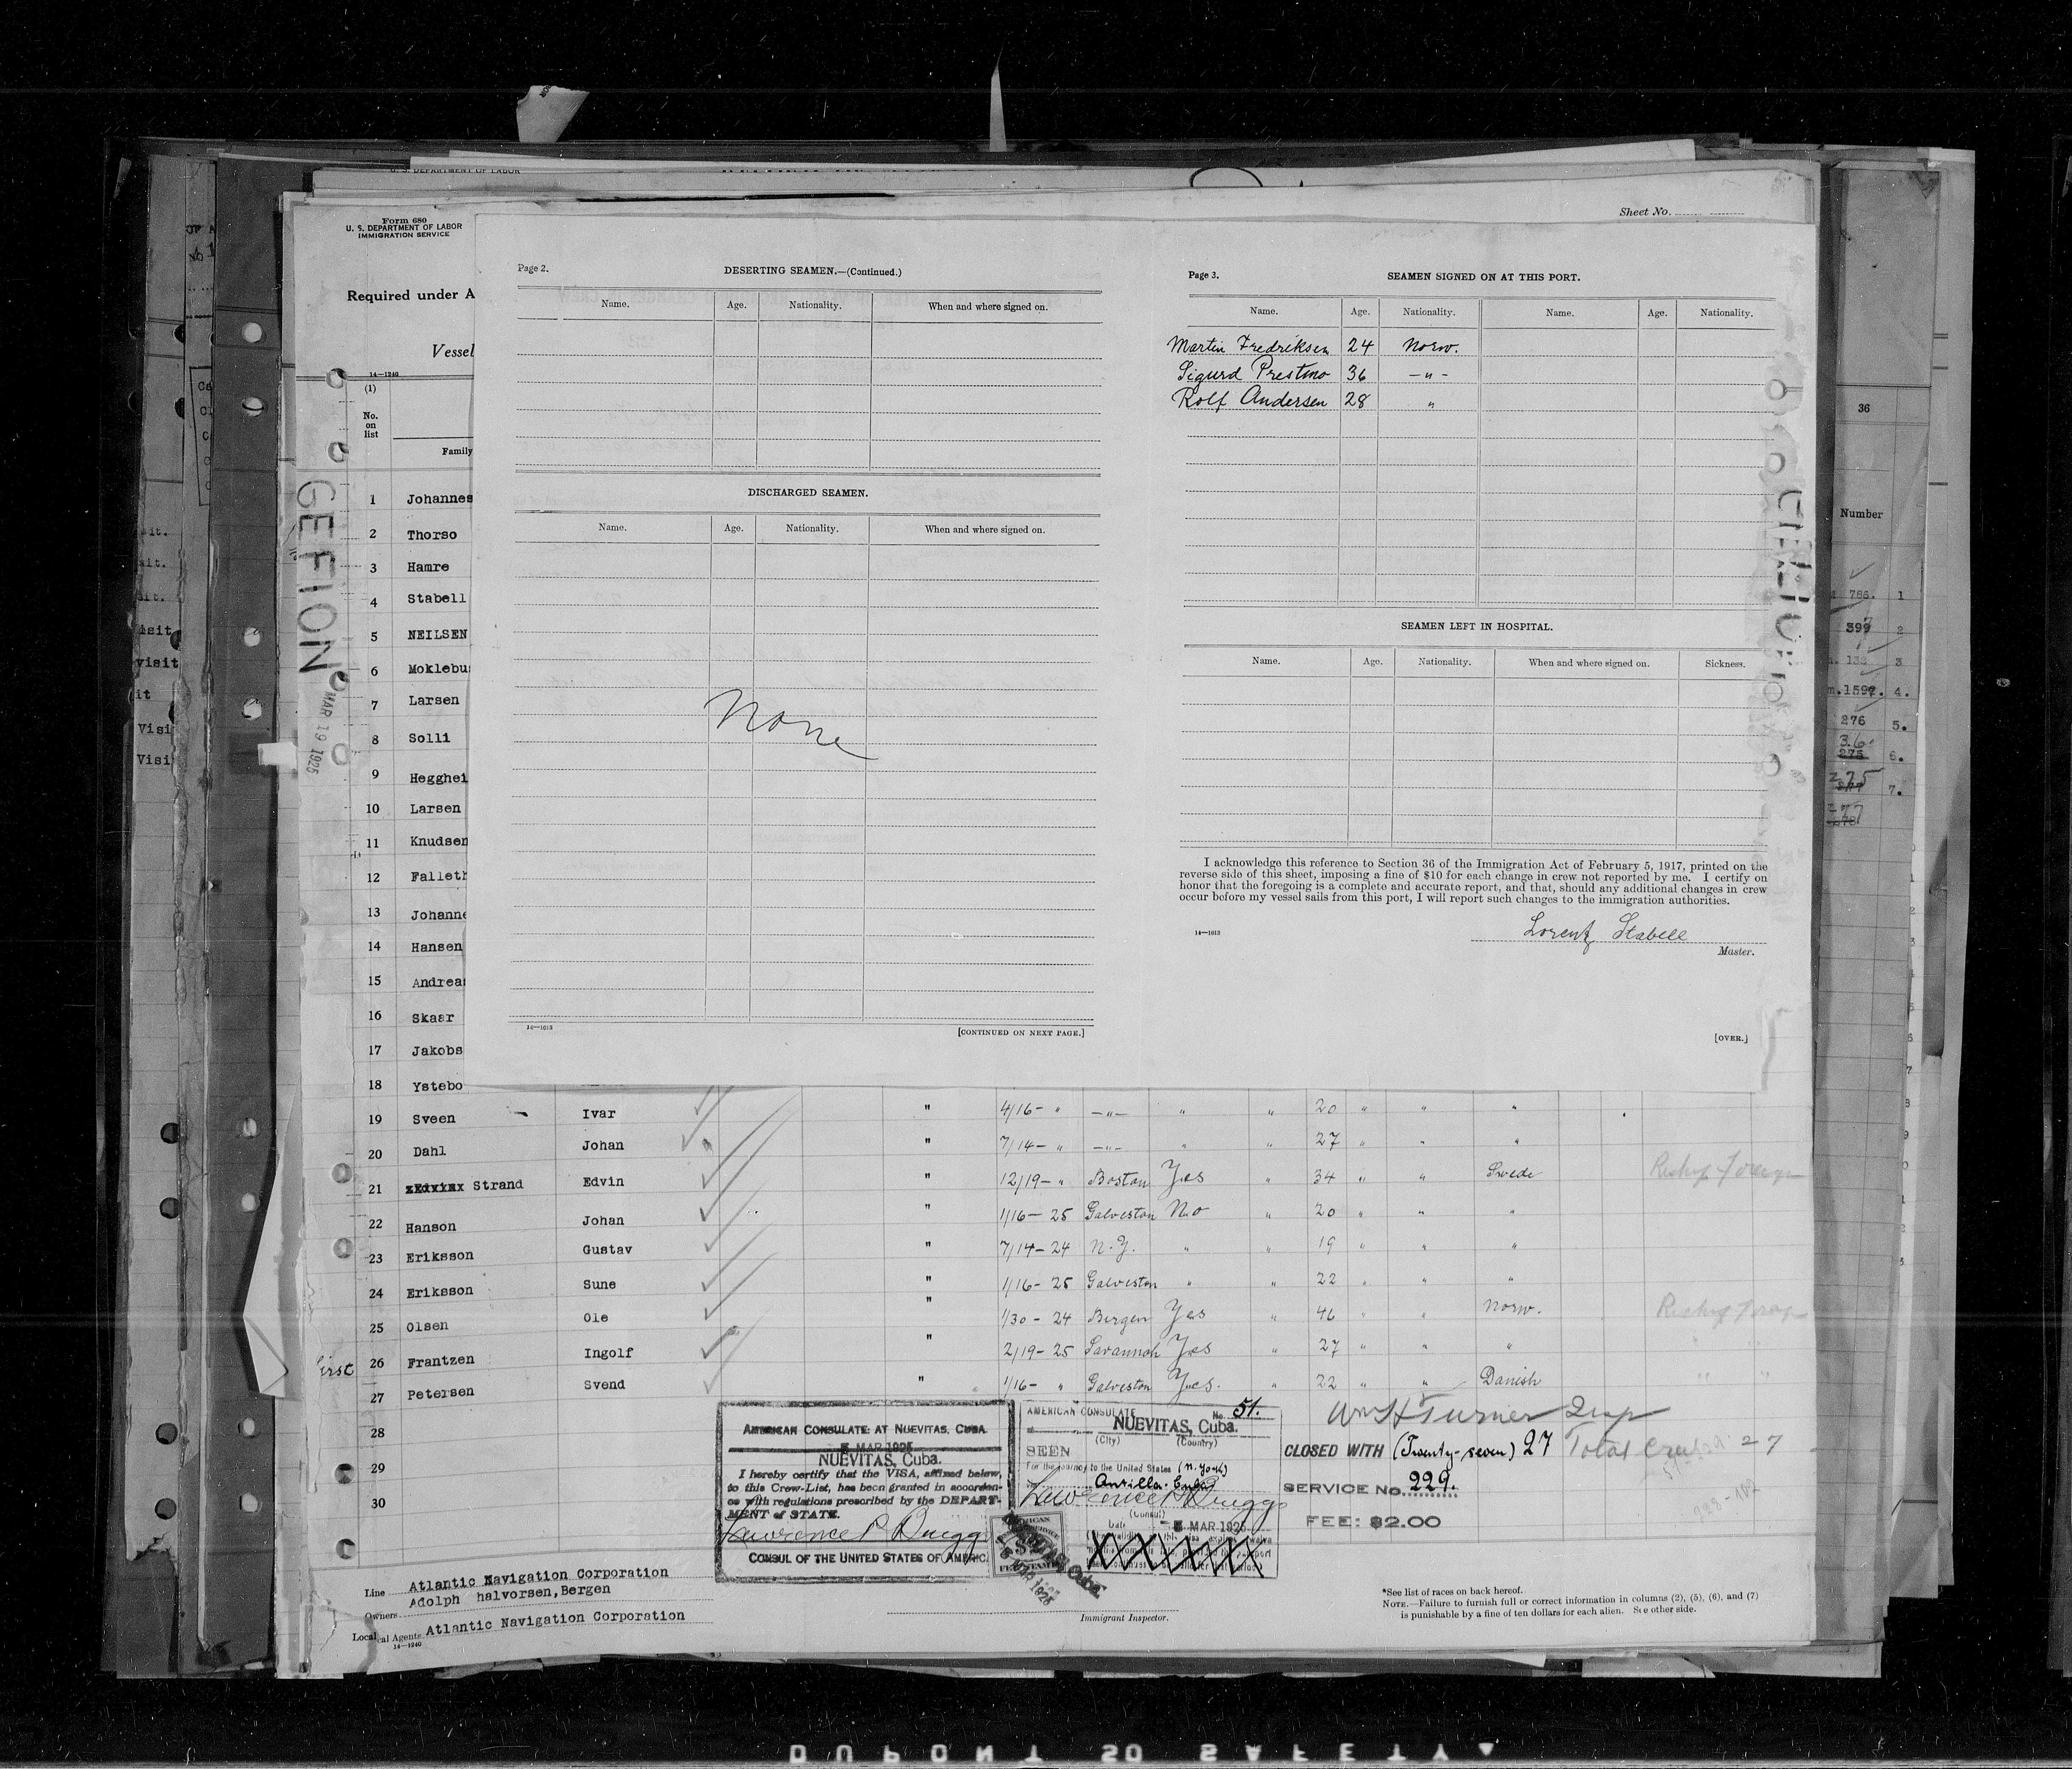 U. S. DEPARTMENT OF LABOR
Sheet No.
Form 680
U. S. DEPARTMENT OF LABOR
IMMIGRATION SERVICE
Required under A
Vessel
14—1240
(1)
No. on list
Family
GEFION
MAR 19 1925
1 Johannes
2 Thorso
3 Hamre
4 Stabell
5 NEILSEN
6 Moklebu
7 Larsen
8 Solli
9 Hegghei
10 Larsen
11 Knudsen
12 Falleth
13 Johanne
14 Hansen
15 Andreas
16 Skaar
17 Jakobs
18 Ystebo
Page 2.
DESERTING SEAMEN.—(Continued.)
Name. Age. Nationality. When and where signed on.
DISCHARGED SEAMEN.
Name. Age. Nationality. When and where signed on.
None
14—1613
[CONTINUED ON NEXT PAGE.]
Page 3.
SEAMEN SIGNED ON AT THIS PORT.
Name. Age. Nationality. Name. Age. Nationality.
Martin Fredriksen 24 Norw.
Sigurd Prestmo 36 —"—
Rolf Andersen 28 "
SEAMEN LEFT IN HOSPITAL.
Name. Age. Nationality. When and where signed on. Sickness.
I acknowledge this reference to Section 36 of the Immigration Act of February 5, 1917, printed on the
reverse side of this sheet, imposing a fine of $10 for each change in crew not reported by me. I certify on
honor that the foregoing is a complete and accurate report, and that, should any additional changes in crew
occur before my vessel sails from this port, I will report such changes to the immigration authorities.
Lorentz Stabell
14—1613
Master.
[OVER.]
19 Sveen Ivar " 4/16— " —"— " " 20 " " "
20 Dahl Johan " 7/14— " —"— " " 27 " " "
21 xEdvinx Strand Edvin " 12/19— " Boston Yes " 34 " " Swede
22 Hanson Johan " 1/16— 25 Galveston No " 20 " " "
23 Eriksson Gustav " 7/14— 24 N.Y. " " 19 " " "
24 Eriksson Sune " 1/16— 25 Galveston " " 22 " " "
25 Olsen Ole " 1/30— 24 Bergen Yes " 46 " " Norw.
first 26 Frantzen Ingolf " 2/19— 25 Savannah Yes " 27 " " "
27 Petersen Svend " 1/16— " Galveston Yes. " 22 " " Danish
28
29
30
AMERICAN CONSULATE AT NUEVITAS, CUBA.
5 MAR 1925
NUEVITAS, Cuba.
I hereby certify that the VISA, affixed below,
to this Crew-List, has been granted in accordance
with regulations prescribed by the DEPARTMENT
of STATE.
CONSUL OF THE UNITED STATES OF AMERIC.
AMERICAN CONSULATE No. 51.
NUEVITAS, Cuba.
(City) (Country)
SEEN
For the journey to the United States (N. York)
Antilla - Cuba
(Consul)
Date 5 MAR 1925
Wm H Turner Insp
CLOSED WITH (Twenty-seven) 27 Total Crew 27
SERVICE No. 229.
FEE: $2.00
Line Atlantic Navigation Corporation
Owners Adolph halvorsen, Bergen
Local Agents Atlantic Navigation Corporation
14—1240
Immigrant Inspector.
*See list of races on back hereof.
NOTE.—Failure to furnish full or correct information in columns (2), (5), (6), and (7)
is punishable by a fine of ten dollars for each alien. See other side.
36
Number
786. 1
399 2
3
1597. 4.
276 5.
36. 6.
275 7.
277
DUPONT SAFETY